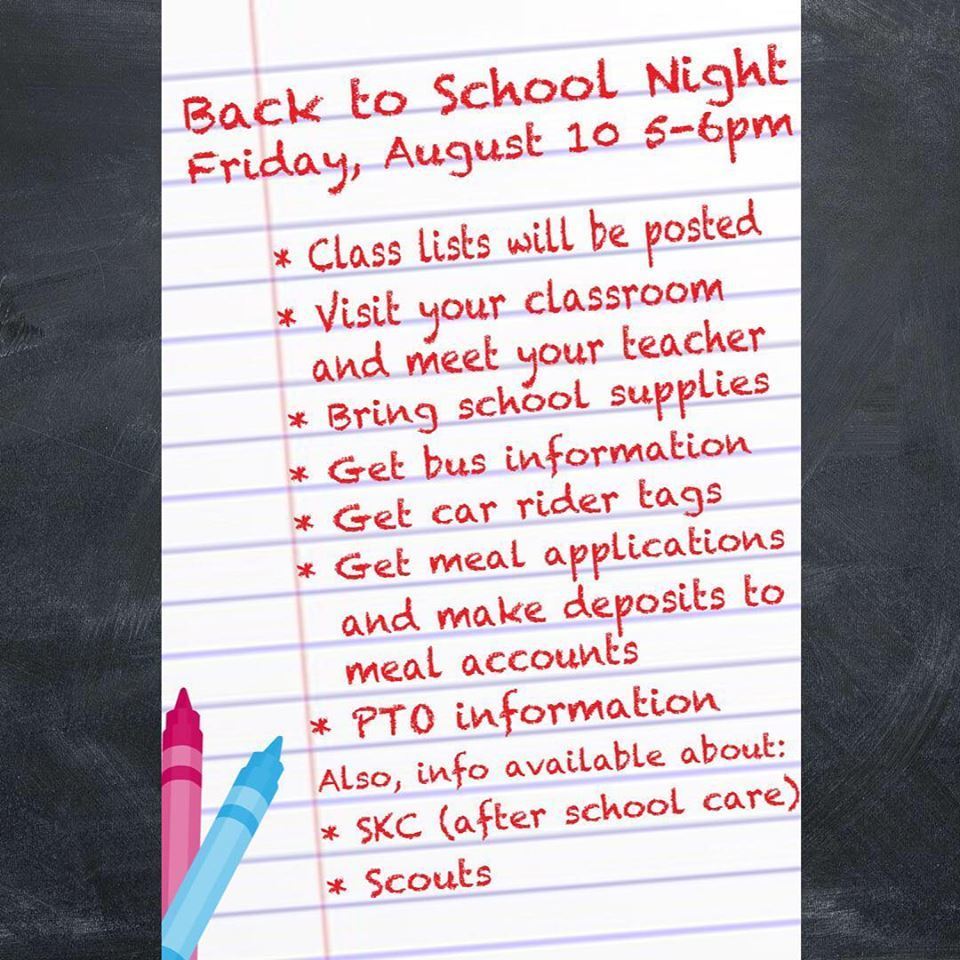 Back to School Night
Friday, August 10 5-6pm
* Class lists will be posted
* Visit your classroom
and meet your teacher
* Bring school supplies
* Get bus information
* Get car rider tags
* Get meal applications
and make deposits to
meal accounts
* PTO information
Also, info available about:
* SKC (after school care)
* Scouts